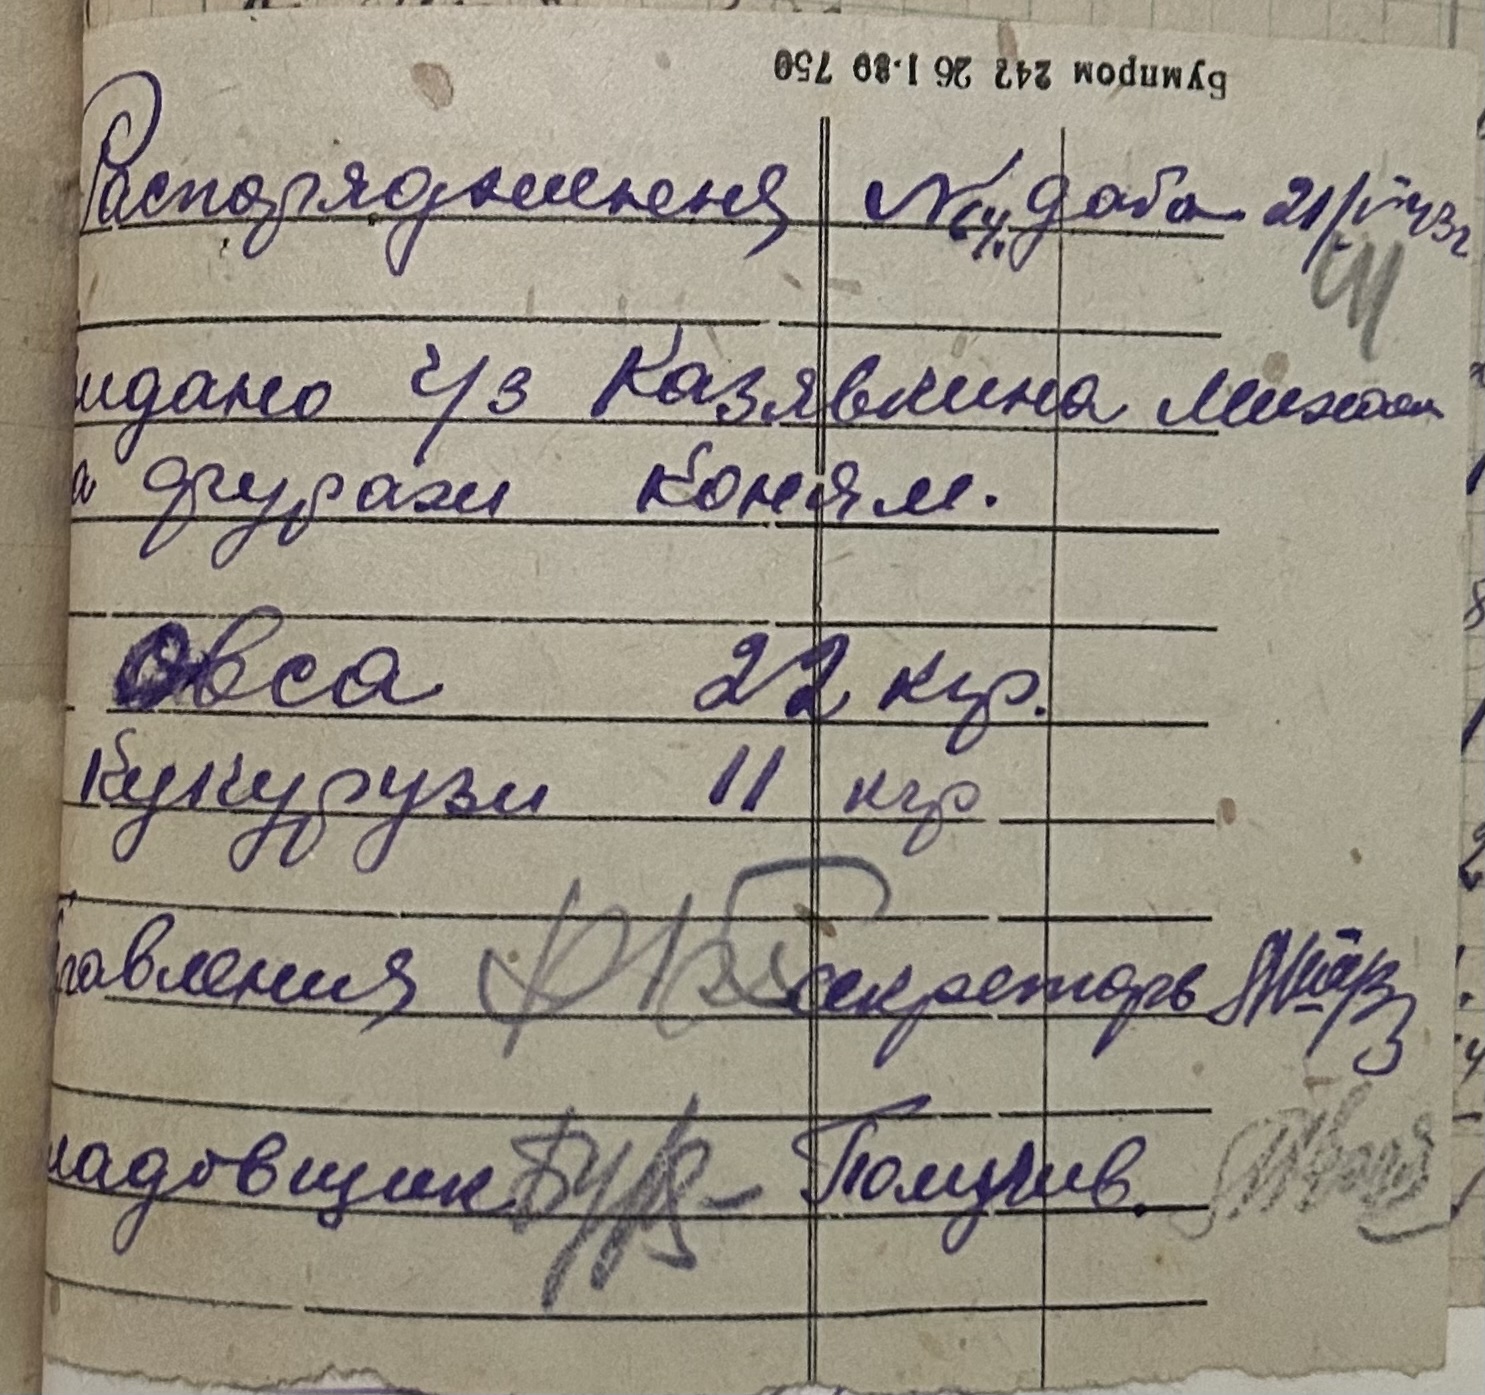 Бумпром 242 26 1·80 750
Распорядження № 64. даба 21/І-43г
идано ч/з Казявкина Михаил
а фуражи коням.
Овса 22 кгр.
Кукурузи 11 кгр
равления секретарь
ладовщик Получив.